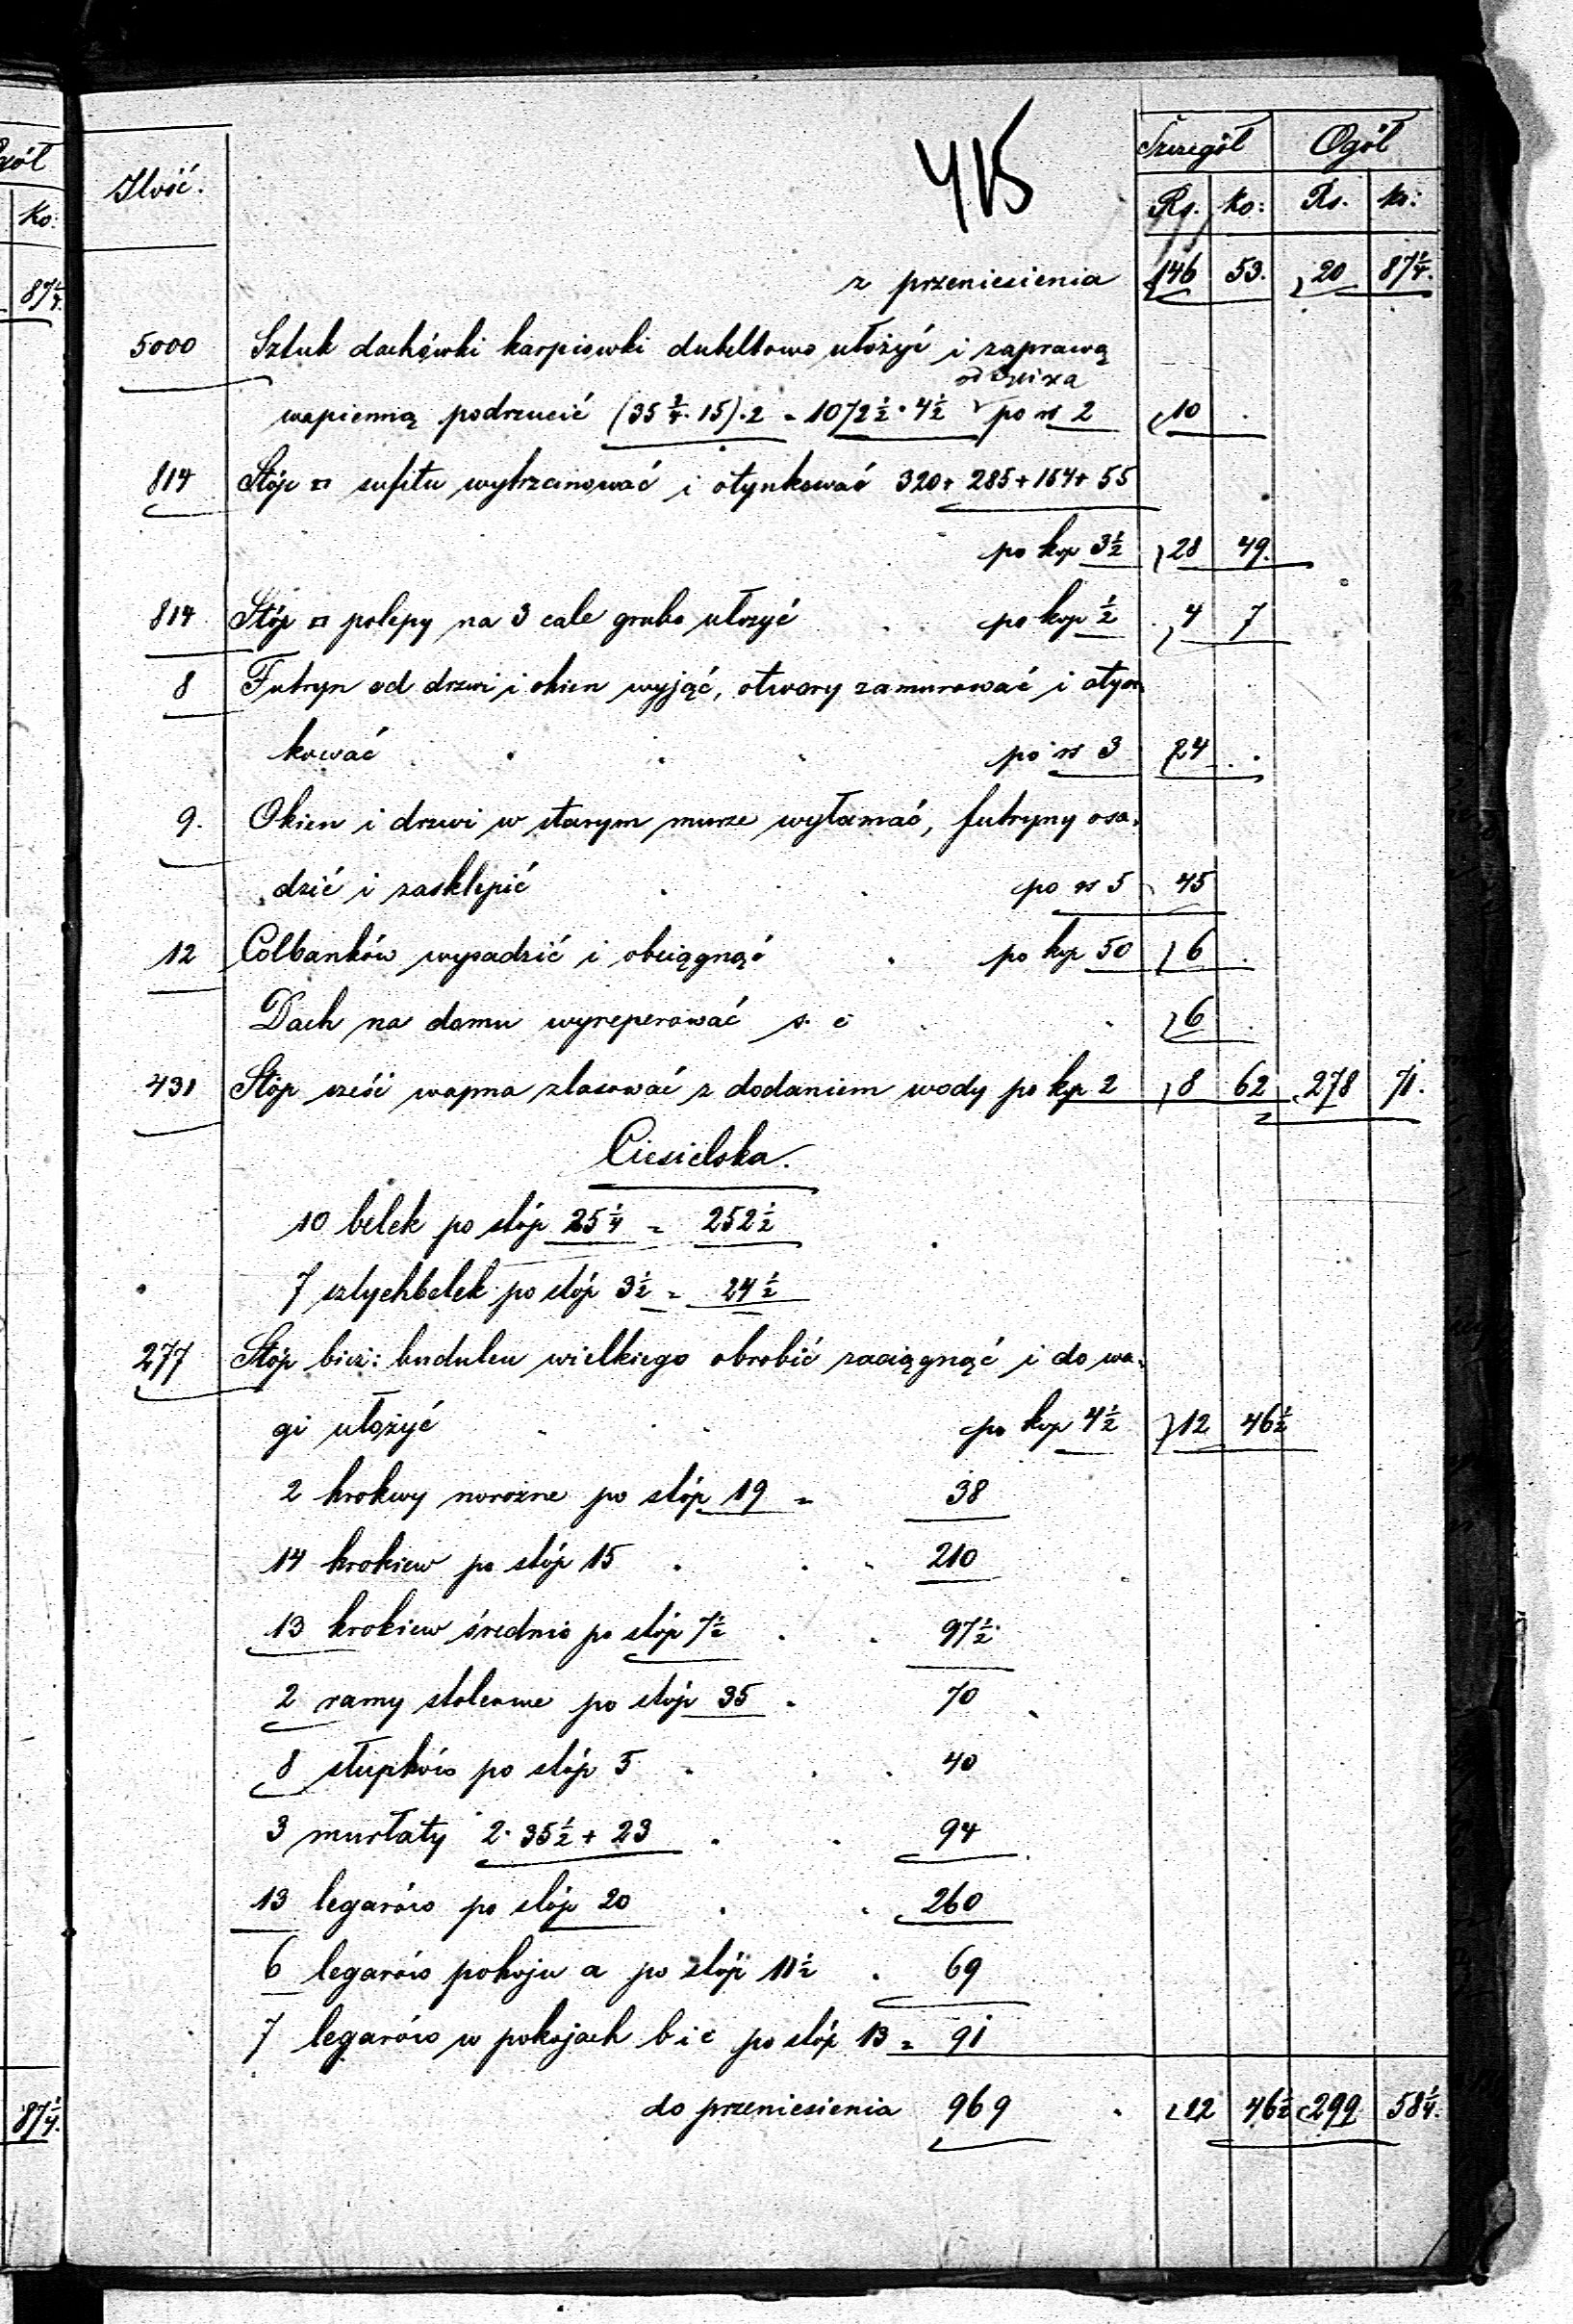 415
gół
Ilość. Szczegół Ogół
Ko: Rs. ko: Rs. k:
87 1/4. z przeniesienia 146 53. 20 87 1/4.
5000 Sztuk dachówki karpiowki dubeltowo ułożyć i zaprawą
od tysiąca
wapienną podrzucić (35 3/4 · 15) · 2 = 1072 1/2 · 4 1/2 po rs 2 10 .
814 Stóp □ sufitu wytrzcinować i otynkować 320 + 285 + 154 + 55
po kop 3 1/2 28 49.
814 Stóp □ polepy na 3 cale grubo ułozyć po kop 1/2 4 7
8 Futryn od drzwi i okien wyjąć, otwory zamurować i otyn=
kować po rs 3 24 .
9. Okien i drzwi w starym murze wyłamać, futryny osa=
dzić i zasklepić po rs 5 45
12 Colbanków wysadzić i obciągnąć po kop 50 6 .
Dach na domu wyreperować s. c 6 .
431 Stóp sześć wapna zlasować z dodaniem wody po kop 2 8 62 278 71.
Ciesielska.
10 belek po stóp 25 1/4 = 252 1/2
7 sztychbelek po stóp 3 1/2 = 24 1/2
277 Stóp bież: budulcu wielkiego obrobić zaciągnąć i do wa=
gi ułożyć po kop 4 1/2 12 46 1/2
2 krokwy narożne po stóp 19 = 38
14 krokiew po stóp 15 " 210
13 krokiew średnio po stóp 7 1/2 " 97 1/2
2 ramy stolcowe po stóp 35 " 70
8 słupków po stóp 5 " 40
3 murłaty 2 · 35 1/2 + 23 " 94
13 legarów po stóp 20 " 260
6 legarów pokoju a po stóp 11 1/2 " 69
7 legarów w pokojach b i c po stóp 13 = 91
87 1/4. do przeniesienia 969 " 12 46 1/2 299 58 1/4.